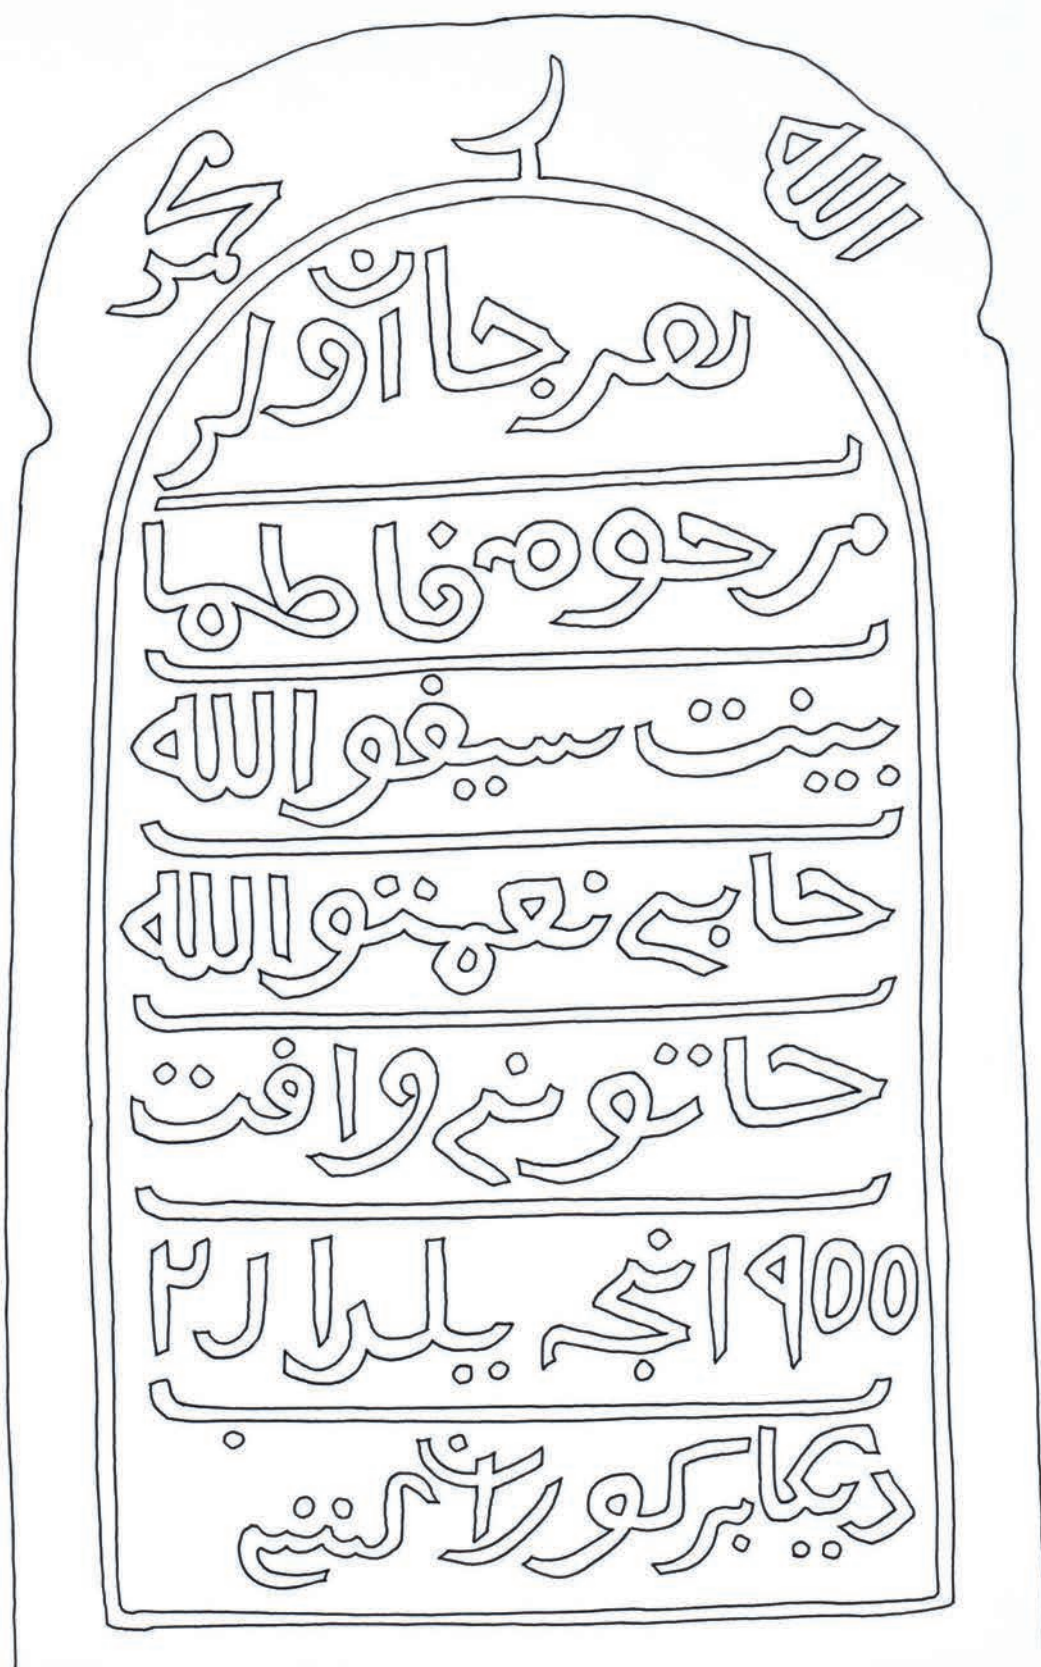 الله
محمد
هر جان اولر
مرحومه فاطما
بينت سيفوالله
حابي نعمتوالله
حاتوني وافت
١٩٥٥ نجى يلدا ٢
ديكابر كوران